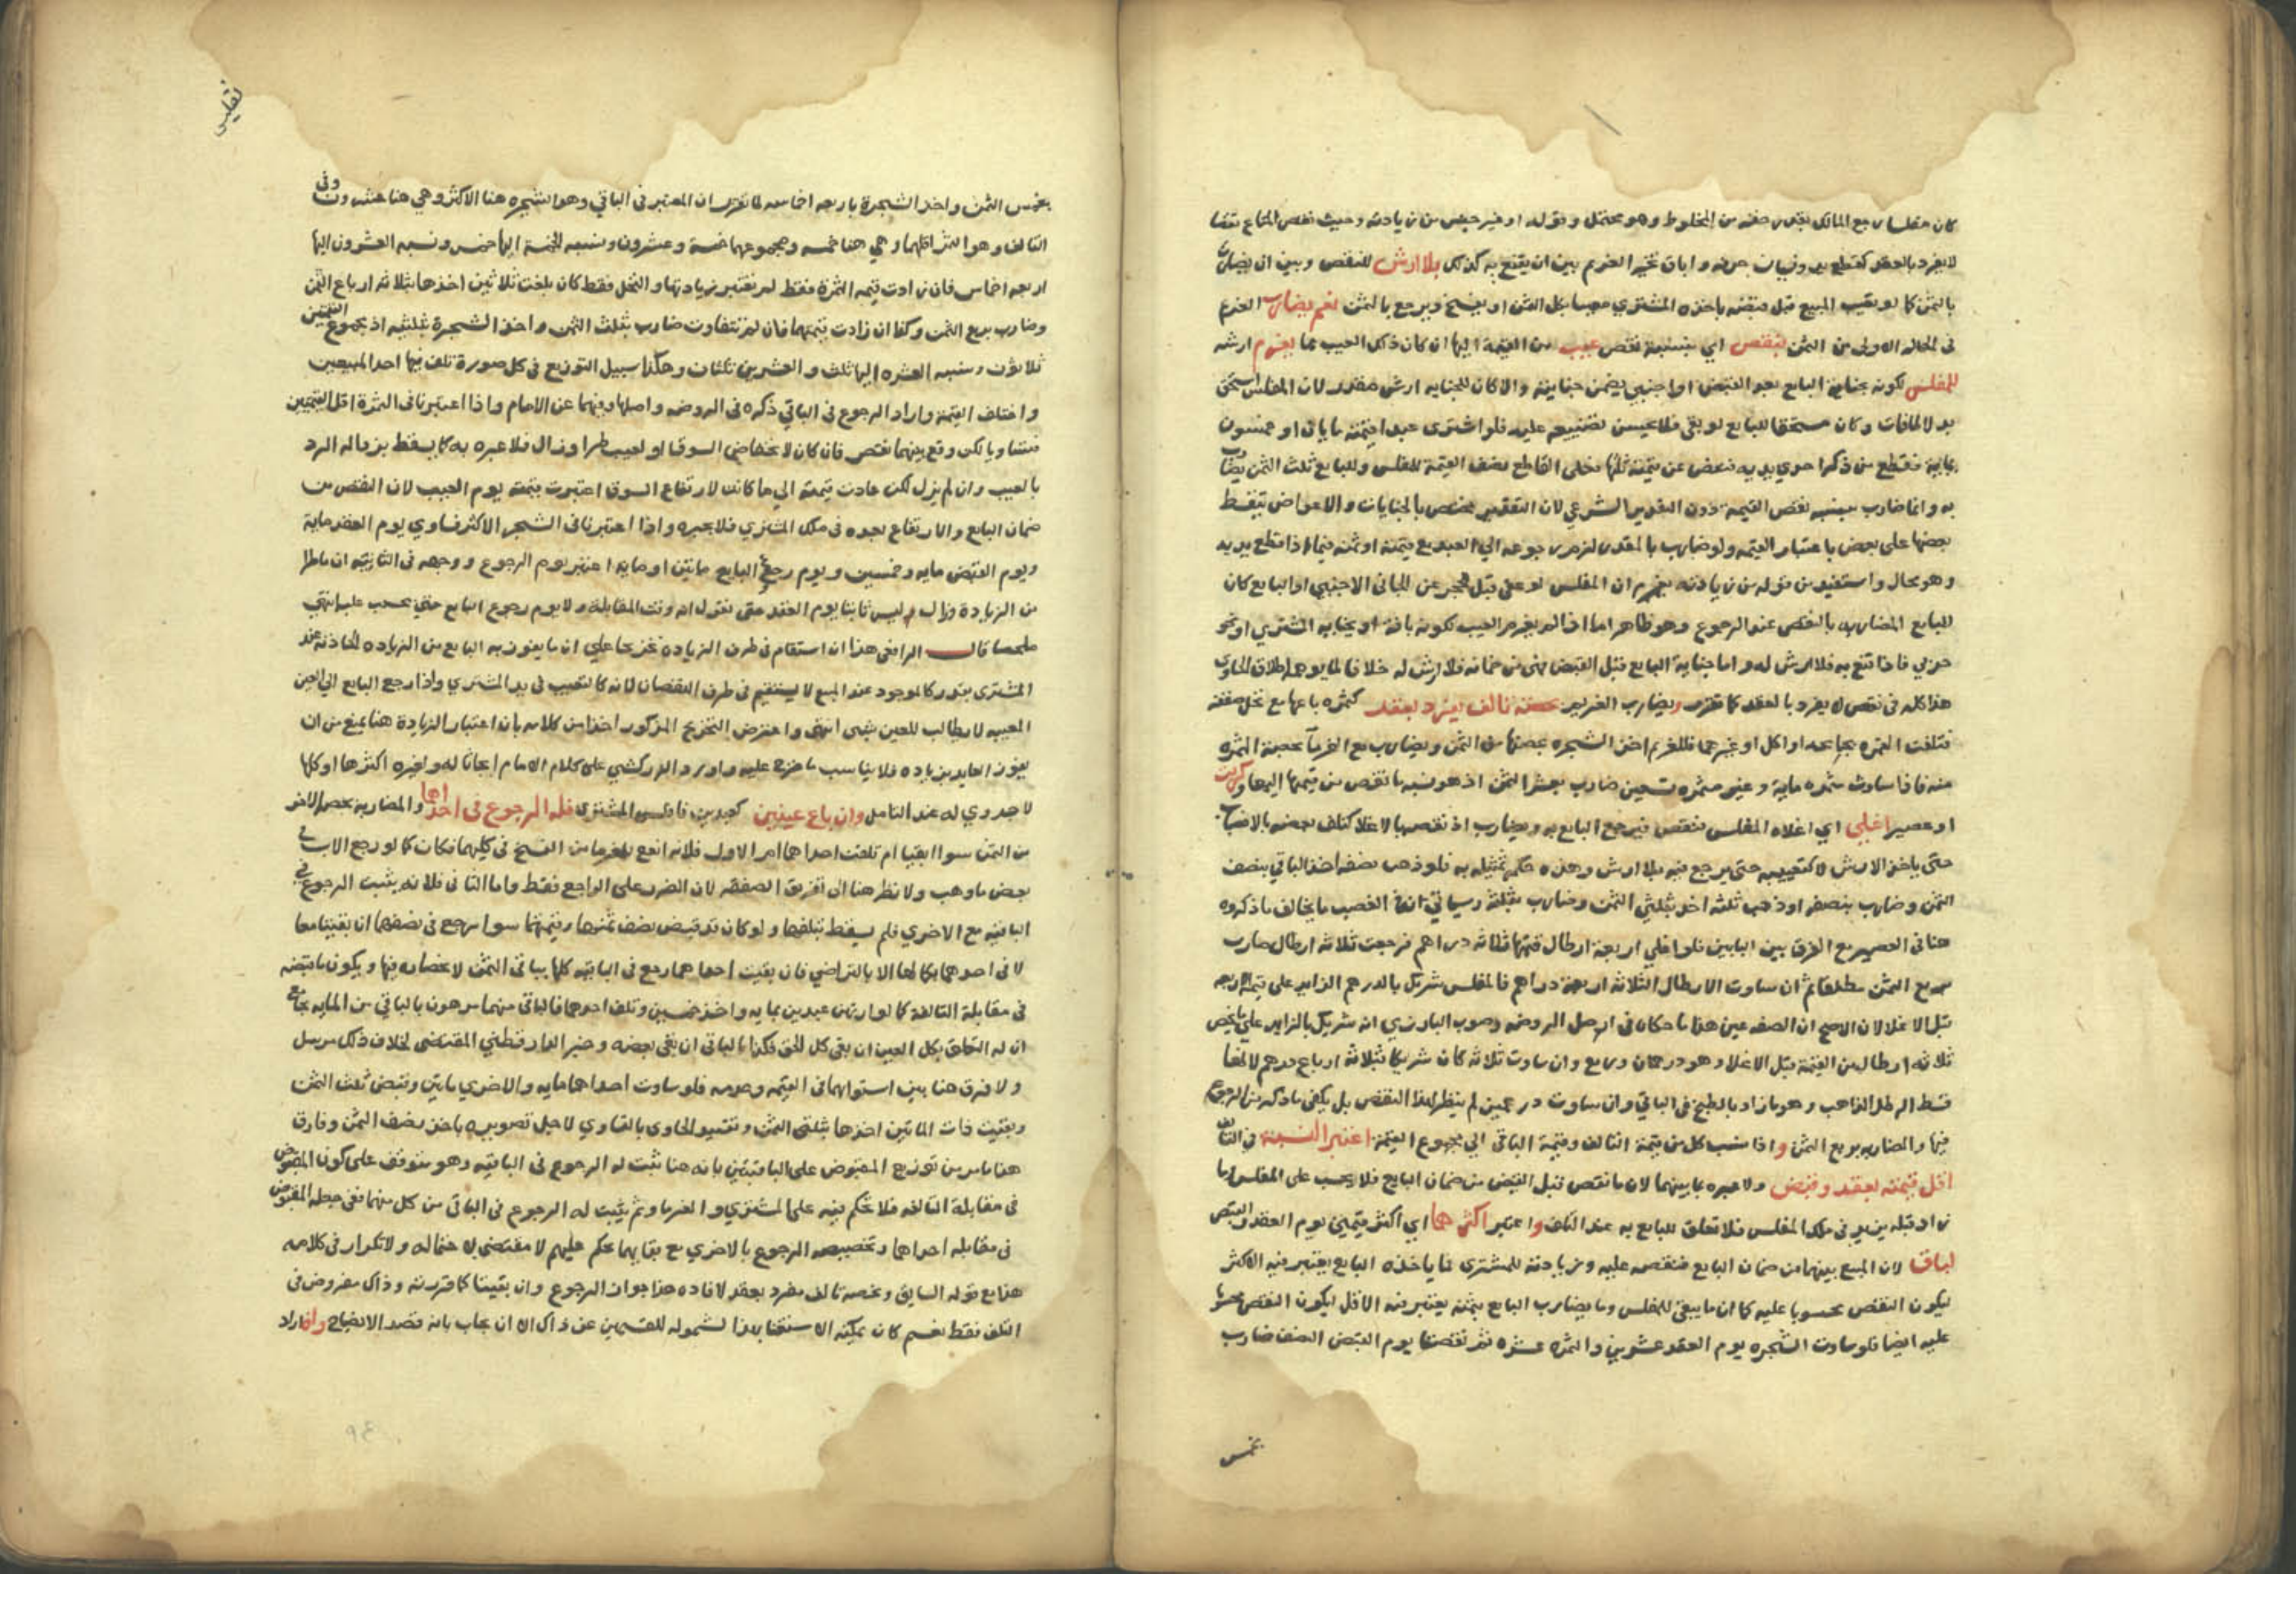 كان مفلسا رجع المالك بقدر حقه من المخلوط وهو محتمل وقوله او غير جنس من زيادته وحيث نقص المتاع نقصا
لا يفرد بالعقد كقطع يد ونسيان حرفة واباق تخير الغريم بين ان يقنع به كذلك بلا ارش للنقص وبين ان يضارب
بالثمن كما لو تعيب المبيع قبل قبضه ياخذه المشتري معيبا بكل الثمن او يفسخ ويرجع بالثمن نعم يضارب الغريم
في الحالة الاولى من الثمن بنقص اي بنسبة نقص عيب من القيمة اليها ان كان ذلك العيب مما يغرم ارشه
للمفلس لكونه بجناية البايع بعد القبض او اجنبي يضمن جنايته والا كان للجنايه ارش مقدر لان المفلس استحق
بدلا لما فات وكان مستحقا للبايع لو بقي فلا يحسن تضييعه عليه فلو اشترى عبدا قيمته مايتان او خمسون
بماية فقطع من ذكر احدي يديه فنقص عن قيمته ثلثها فعلى القاطع نصف القيمة للمفلس وللبايع ثلث الثمن يضارب
به وانما ضارب بنسبة نقص القيمة دون التقدير الشرعي لان التقدير مختص بالجنايات والاعواض يتقسط
بعضها على بعض باعتبار القيمة ولو ضارب بالمقدر لزم رجوعه الي العبد مع قيمته او ثمنه فيما اذا قطع يديه
وهو محال واستفيد من قوله من زيادته يغرم ان المفلس لو عفى قبل الحجر عن الجاني الاجنبي او البايع كان
للبايع المضاربه بالنقص عند الرجوع وهو ظاهر اما اذا لم يغرم العيب لكونه بافة او بجنايه المشتري او نحو
حربي فاذا قنع به فلا ارش له واما جناية البايع قبل القبض فهي من ضمانه فلا ارش له خلافا لما يوهمه اطلاق الحاوي
هذا كله في نقص لا يفرد بالعقد كما تقرر ويضارب الغريم بحصة تالف يفرد بعقد كثمره باعها مع نخل صفقة
فتلفت الثمره بجايحه او اكل او غيرهما فللغريم اخذ الشجره بحصتها من الثمن ويضارب مع الغرما بحصة الثمره
منه فاذا ساوت مثمره ماية وغير مثمره تسعين ضارب بعشر الثمن اذ هو نسبة ما نقص من قيمتها اليها وكزيت
او عصير اغلي اي اغلاه المفلس فنقص فيرجع البايع به ويضارب اذ نقصها بالاغلا كتلف بعضه بالانصباب
حتى ياخذ الارش لا كتعييبه حتى يرجع فيه بلا ارش وهذه حكمة تمثيله به فلو ذهب نصفه اخذ الباقي بنصف
الثمن وضارب بنصفه او ذهب ثلثه اخذ بثلثي الثمن وضارب بثلثه وسياتي انفا الغصب ما يخالف ما ذكروه
هنا في العصير مع الفرق بين البابين فلو اغلي اربعة ارطال قيمتها ثلاثه دراهم فرجعت ثلاثه ارطال ضارب
بربع الثمن مطلقا ثم ان ساوت الارطال الثلاثه اربعة دراهم فالمفلس شريك بالدرهم الزايد على قيمة الاربعه
قبل الاغلا لان الاصح ان الصفة عين هذا ما حكاه في اصل الروضه وصوب البارزي انه شريك بالزايد على ما يخص
ثلاثه ارطال من القيمة قبل الاغلا وهو درهمان وربع وان ساوت ثلاثه كان شريكا بثلاثه ارباع درهم لانها
قسط الرطل الذاهب وهو ما زاد بالطبخ في الباقي وان ساوت درهمين لم ينظر لهذا النقص بل يكفي ما ذكر من الرجوع
فيها والمضاربه بربع الثمن واذا نسب كل من قيمة التالف وقيمة الباقي الي مجموع القيمة اعتبر النسبة في التالف
اقل قيمته بعقد وقبض ولا عبره بما بينهما لان ما نقص قبل القبض من ضمان البايع فلا يحسب على المفلس وما
زاد قبله يزيد في ملك المفلس فلا تعلق للبايع به عند التلف واعتبر اكثرهما اي اكثر قيمتين يوم العقد والقبض
لباق لان المبيع بينهما من ضمان البايع فنقصه عليه وزيادته للمشتري فما ياخذه البايع يعتبر فيه الاكثر
ليكون النقص محسوبا عليه كما ان ما يبقى للمفلس وما يضارب البايع بثمنه يعتبر فيه الاقل ليكون النقص محسوبا
عليه ايضا فلو ساوت الشجره يوم العقد عشرين والثمره عشره ثم نقصتا يوم القبض النصف ضارب
بخمس
تفليس
بخمس الثمن واخذ الشجرة باربعه اخماسه لما تقرر ان المعتبر في الباقي وهو الشجره هنا الاكثر وهي هنا عشرون وفي
التالف وهو الثمر اقلهما وهي هنا خمسه ومجموعهما خمسة وعشرون ونسبه الخمسة اليها خمس ونسبه العشرون اليها
اربعه اخماس فان زادت قيمه الثمرة فقط لم يعتبر زيادتها والنخل فقط كان بلغت ثلاثين اخذها بثلاثه ارباع الثمن
وضارب بربع الثمن وكذا ان زادت قيمتهما فان لم تتفاوت ضارب بثلث الثمن واخذ الشجرة بثلثيه اذ مجموع القيمتين
ثلاثون ونسبه العشره اليها ثلث والعشرين ثلثان وهكذا سبيل التوزيع في كل صورة تلف فيها احد المبيعين
واختلف القيمة واراد الرجوع في الباقي ذكره في الروضه واصلها وفيهما عن الامام واذا اعتبرنا في الثمرة اقل القيمتين
فتساويا لكن وقع بينهما نقص فان كان لانخفاض السوق او لعيب طرا وزال فلا عبره به كما يسقط بزواله الرد
بالعيب وان لم يزل لكن عادت قيمته الي ما كانت لارتفاع السوق اعتبرت قيمته يوم العيب لان النقص من
ضمان البايع والارتفاع بعده في ملك المشتري فلا يجبره واذا اعتبرنا في الشجر الاكثر فساوي يوم العقد ماية
ويوم القبض مايه وخمسين ويوم رجوع البايع مايتين او مايه اعتبر يوم الرجوع ووجهه في الثانيه ان ما طرا
من الزيادة وزال وليس ثابتا يوم العقد حتى نقول انه وقت المقابلة ولا يوم رجوع البايع حتى يحسب عليه انتهى
ملخصا قال الرافعي هذا ان استقام في طرف الزيادة تخريجا علي ان ما يفوز به البايع من الزيادة الحادثه عند
المشتري يقدر كالموجود عند البيع لا يستقيم في طرف النقصان لانه كالتعيب في يد المشتري واذا رجع البايع الي العين
المعيبه لا يطالب للعيب بشي انتهى واعترض التخريج المذكور اخذا من كلامه بان اعتبار الزيادة هنا يمنع من ان
يفوز العايد بزياده فلا يناسب ما خرج عليه واورد الزركشي على كلام الامام ابحاثا له ولغيره اكثرها او كلها
لا جدوي له عند التامل وان باع عينين كعبدين فافلس المشتري فله الرجوع في احداهما والمضاربه بحصة الاخر
من الثمن سوا ابقيا ام تلفت احداهما اما الاول فلانه انفع للغرما من الفسخ في كليهما فكان كما لو رجع الاب في
بعض ما وهب ولا نظر هنا الى تفريق الصفقه لان الضرر على الراجع فقط واما الثاني فلانه يثبت الرجوع في
الباقيه مع الاخري فلم يسقط بتلفها ولو كان قد قبض نصف ثمنهما وقيمتهما سوا رجع في نصفهما ان بقيتا معا
لا في احدهما بكمالها الا بالتراضي فان بقيت احداهما رجع في الباقيه كلها بباقي الثمن لانحصاره فيها ويكون ما قبضه
في مقابلة التالفة كما لو ارتهن عبدين بمايه واخذ خمسين وتلف احدهما فالباقي منهما مرهون بالباقي من المايه بجامع
ان له التعلق بكل العين ان بقي كل الحق فكذا بالباقي ان بقي بعضه وخبر الدارقطني المقتضي لخلاف ذلك مرسل
ولا فرق هنا بين استوائهما في القيمه وعدمه فلو ساوت احداهما مايه والاخري مايتين وقبض ثلث الثمن
وبقيت ذات المايتين اخذها بثلثي الثمن وتقييد الحاوي بالتساوي لاجل تصويره باخذ نصف الثمن وفارق
هذا ما مر من توزيع المقبوض على الباقيتين بانه هنا ثبت له الرجوع في الباقيه وهو متوقف على كون المقبوض
في مقابلة التالفه فلا تحكم فيه على المشتري والغرما وثم يثبت له الرجوع في الباقي من كل منهما ففي جعله المقبوض
في مقابله احداهما وتخصيصه الرجوع بالاخري مع بقايهما تحكم عليهم لا مقتضى لاحتماله ولا تكرار في كلامه
هذا مع قوله السابق وبحصه تالف مفرد بعقد لافاده هذا جواز الرجوع وان بقيتا كما قررته وذاك مفروض في
التلف فقط نعم كان يمكنه الاستغنا بهذا لشموله للقسمين عن ذاك الا ان يجاب بانه قصد الايضاح واذا اراد